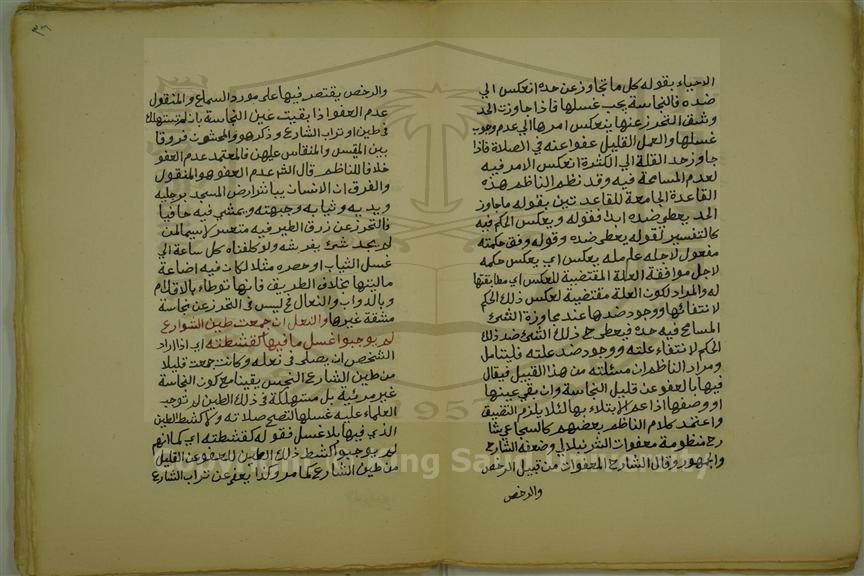 الاحياء بقوله كل ما تجاوز عن حده انعكس الي
ضده فالنجاسة يجب غسلها فاذا جاوزت الحد
وشق التحرز عنها ينعكس امرها الي عدم وجوب
غسلها والعمل القليل عفوا عنه في الصلاة فاذا
جاوز حد القلة الي الكثرة انعكس الامر فيه
لعدم المسامحة فيه وقد نظم الناظم هذه
القاعدة الجامعة للقاعدتين بقوله ما جاوز
الحد يعطى ضده ابدا فقوله ويعكس الحكم فيه
كالتفسير لقوله يعطى ضده وقوله وفق حكمته
مفعول لاجله علم مله يعكس اي يعكس حكمه
لاجل موافقة العلة المقتضية للعكس اي مطابقتها
له والمراد لكون العلة مقتضية لعكس ذلك الحكم
لانتفائها ووجود ضدها عند مجاوزة الشئ
المسامح فيه حده فيعطى ح ذلك الشئ ضد ذلك
الحكم لانتفاء علته ووجود ضد علته فليتامل
ومراد الناظم ان مسئلته من هذا القبيل فيقال
فيها بالعفو عن قليل النجاسة وان بقي عينها
او وصفها اذا عم الابتلاء بها لئلا يلزم التضيق
واعتمد كلام الناظم بعضهم كالسجاعي
منظومة معفوات الشرنبلالي وضعفه الشارح
والجمهور وقال الشارح المعفوات من قبيل الرخص
والرخص
٣٦
والرخص يقتصر فيها على مورد السماع والمنقول
عدم العفو اذا بقيت عين النجاسة بان لم تستهلك
في طين او تراب الشارع وذكر هو والمحشون فروقا
بين المقيس والمنقاس عليهن فالمعتمد عدم العفو
خلافا للناظم قال الشم عدم العفو هو المنقول
والفرق ان الانسان يباشر ارض المسجد برجليه
ويديه وثيابه وجبهته ويمشي فيه حافيا
فالتحرز عن زرق الطير فيه متعسر لاسيما لمن
لم يجد شئ يفرشه ولو كلفناه كل ساعة الي
غسل الثياب او حصره مثلا لكان فيه اضاعة
ماليتها بخلاف الطريق فانها توطاء بالاقدام
وبالدواب والنعال فح ليس في التحرز عن نجاسة
مشقة غيرها والنعل ان جمعت طين الشوارع
لم يوجبوا غسل ما فيها كقشطته اي اذا اراد
الشخص ان يصلى في نعله وكانت جمعت قليلا
من طين الشارع النجس يقينا مع كون النجاسة
غير مرئية بل مستهلكة في ذلك الطين لم توجب
العلماء عليه غسلها لتصح صلاته ولا كشط الطين
الذي فيها بلا غسل فقوله كقشطته اي كما انهم
لم يوجبوا كشط ذلك الطين للعفو عن القليل
من طين الشارع كما مر وكذا يعفى عن تراب الشارع
Copyright © King Saud University
1957